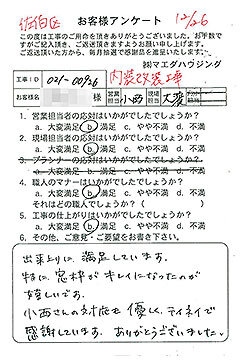 佐伯区
お客様アンケート
12/26
この度は工事のご用命を頂きありがとうございました。お手数で
すがご記入頂き、ご返送頂きますようお願い申し上げます。
ご返送頂いた方から、毎月抽選で感謝品を進呈いたします。
㈱マエダハウジング
工事ID
内装改装工事
お客様名
様
営業担当
小西
現場担当
大変
1. 営業担当者の応対はいかがでしたでしょうか？
a. 大変満足 b. 満足 c. やや不満 d. 不満
2. 現場担当者の応対はいかがでしたでしょうか？
a. 大変満足 b. 満足 c. やや不満 d. 不満
3. プランナーの応対はいかがでしたでしょうか？
a. 大変満足 b. 満足 c. やや不満 d. 不満
4. 職人のマナーはいかがでしたでしょうか？
a. 大変満足 b. 満足 c. やや不満 d. 不満
それはどの職人でしょうか？（　　　）
5. 工事の仕上がりはいかがでしたでしょうか？
a. 大変満足 b. 満足 c. やや不満 d. 不満
6. その他、ご意見・ご要望をお書き下さい。
出来上りに満足しています。
特に窓枠がキレイになったのが
嬉しいです。
小西さんの対応も優しく、テイネイで
感謝しています。ありがとうございました。